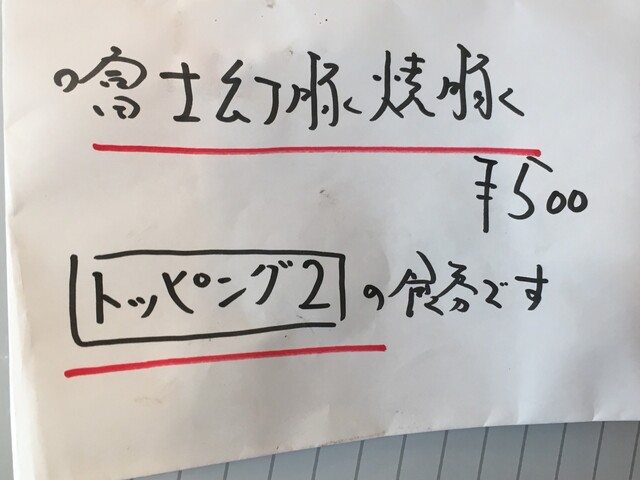 ○富士幻豚焼豚
¥500
トッピング2の食券です